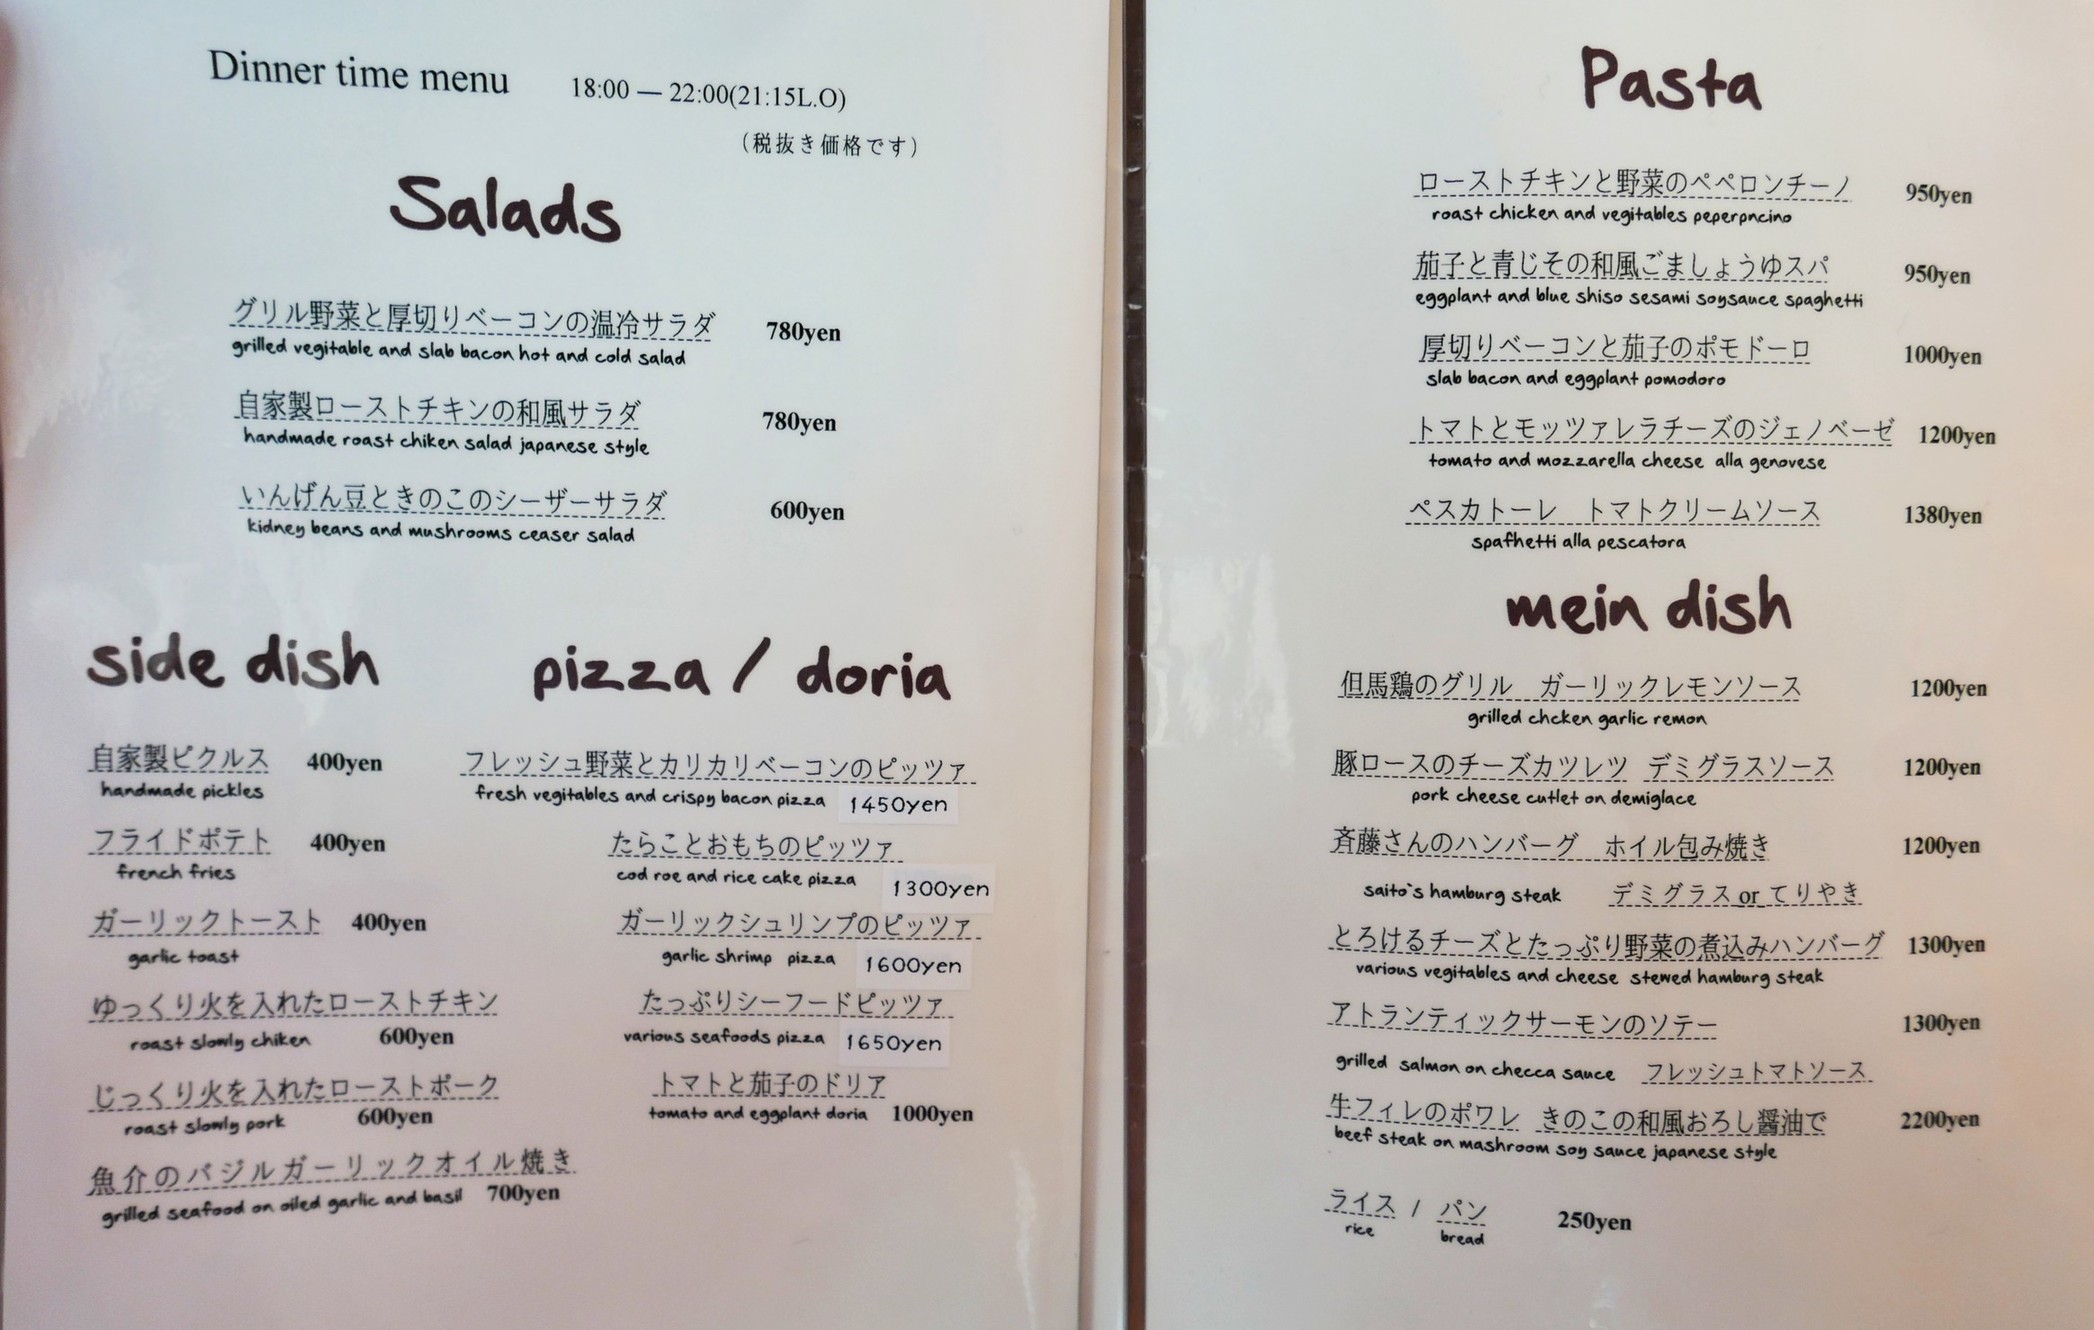 Dinner time menu 18:00 — 22:00(21:15L.O)
（税抜き価格です）
Salads
グリル野菜と厚切りベーコンの温冷サラダ 780yen
grilled vegitable and slab bacon hot and cold salad
自家製ローストチキンの和風サラダ 780yen
handmade roast chiken salad japanese style
いんげん豆ときのこのシーザーサラダ 600yen
kidney beans and mushrooms ceaser salad
side dish
自家製ピクルス 400yen
handmade pickles
フライドポテト 400yen
french fries
ガーリックトースト 400yen
garlic toast
ゆっくり火を入れたローストチキン
roast slowly chiken 600yen
じっくり火を入れたローストポーク
roast slowly pork 600yen
魚介のバジルガーリックオイル焼き
grilled seafood on oiled garlic and basil 700yen
pizza / doria
フレッシュ野菜とカリカリベーコンのピッツァ
fresh vegitables and crispy bacon pizza 1450yen
たらことおもちのピッツァ
cod roe and rice cake pizza 1300yen
ガーリックシュリンプのピッツァ
garlic shrimp pizza 1600yen
たっぷりシーフードピッツァ
various seafoods pizza 1650yen
トマトと茄子のドリア
tomato and eggplant doria 1000yen
Pasta
ローストチキンと野菜のペペロンチーノ 950yen
roast chicken and vegitables peperpncino
茄子と青じその和風ごましょうゆスパ 950yen
eggplant and blue shiso sesami soysauce spaghetti
厚切りベーコンと茄子のポモドーロ 1000yen
slab bacon and eggplant pomodoro
トマトとモッツァレラチーズのジェノベーゼ 1200yen
tomato and mozzarella cheese alla genovese
ペスカトーレ トマトクリームソース 1380yen
spafhetti alla pescatora
mein dish
但馬鶏のグリル ガーリックレモンソース 1200yen
grilled chcken garlic remon
豚ロースのチーズカツレツ デミグラスソース 1200yen
pork cheese cutlet on demiglace
斉藤さんのハンバーグ ホイル包み焼き 1200yen
saito's hamburg steak デミグラス or てりやき
とろけるチーズとたっぷり野菜の煮込みハンバーグ 1300yen
various vegitables and cheese stewed hamburg steak
アトランティックサーモンのソテー 1300yen
grilled salmon on checca sauce フレッシュトマトソース
牛フィレのポワレ きのこの和風おろし醤油で 2200yen
beef steak on mashroom soy sauce japanese style
ライス / パン 250yen
rice bread